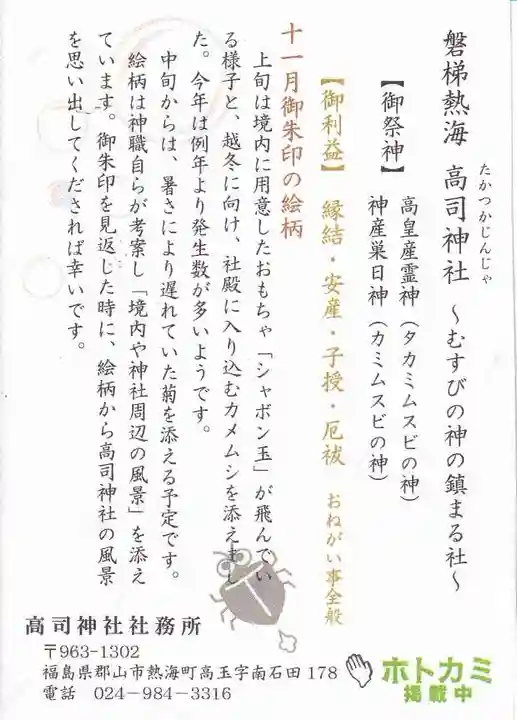 磐梯熱海 高司神社 ～むすびの神の鎮まる社～
たかつかじんじゃ
【御祭神】 高皇産霊神（タカミムスビの神）
神産巣日神（カミムスビの神）
【御利益】 縁結・安産・子授・厄祓 おねがい事全般
十一月御朱印の絵柄
上旬は境内に用意したおもちゃ「シャボン玉」が飛んでい
る様子と、越冬に向け、社殿に入り込むカメムシを添えまし
た。今年は例年より発生数が多いようです。
中旬からは、暑さにより遅れていた菊を添える予定です。
絵柄は神職自らが考案し「境内や神社周辺の風景」を添え
ています。御朱印を見返した時に、絵柄から高司神社の風景
を思い出してくだされば幸いです。
高司神社社務所
〒963-1302
福島県郡山市熱海町高玉字南石田178
電話 024-984-3316
ホトカミ
掲載中